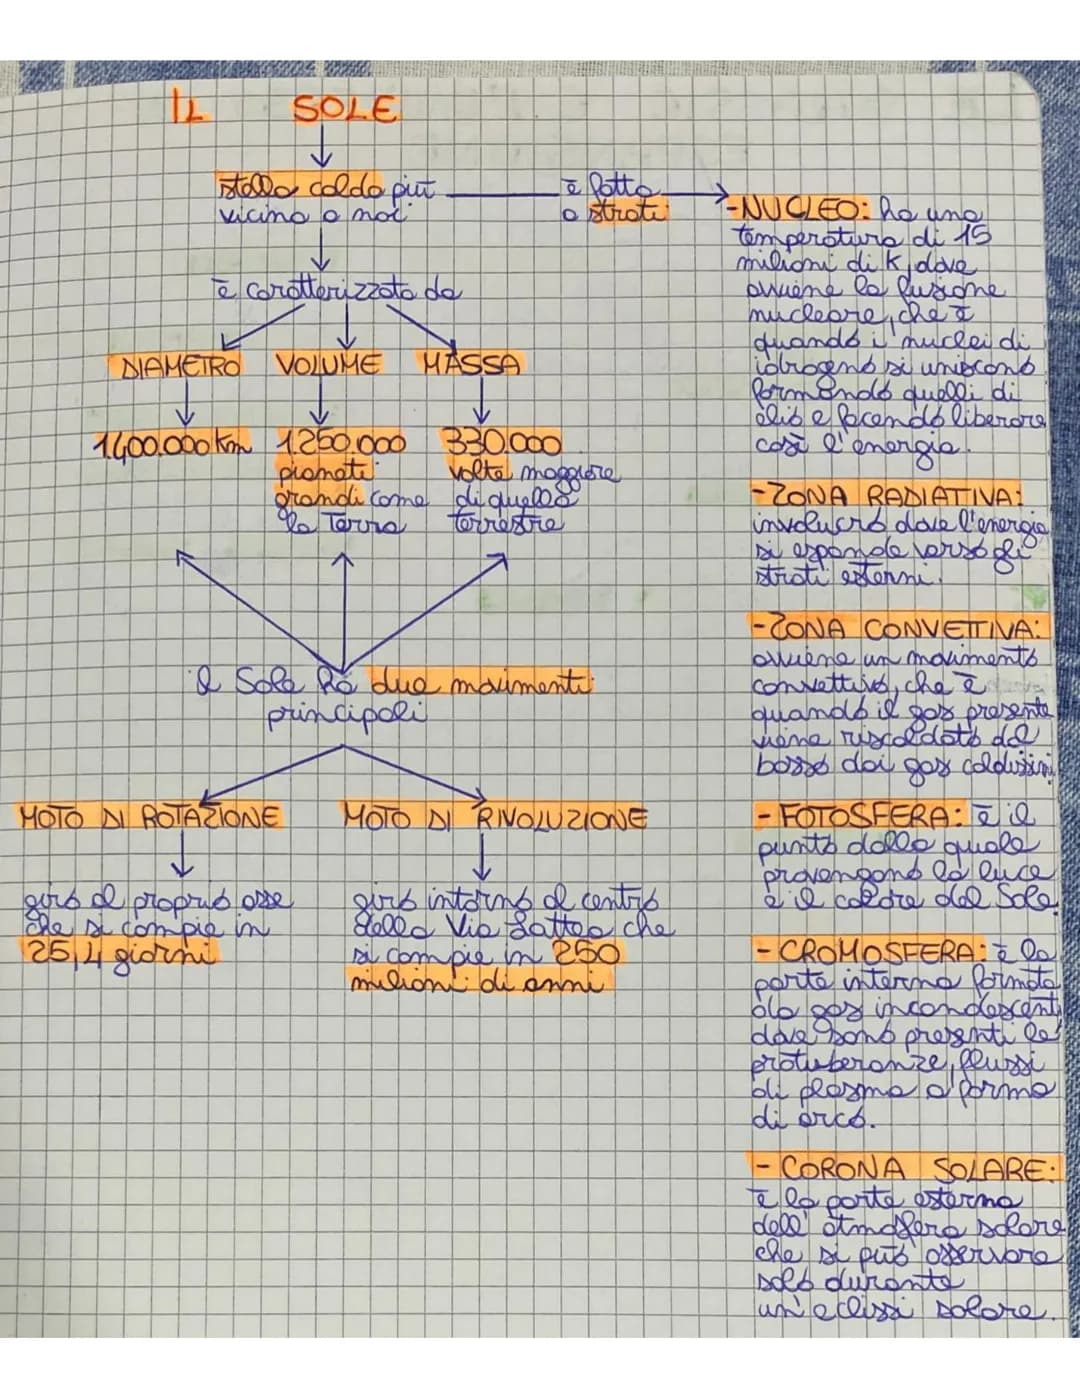 IL SOLE
stella calda più
vicino a noi
è fatto
a strati
è caratterizzata da
DIAMETRO VOLUME MASSA
1.400.000 km 1.250.000 330.000
pianeti volte maggiore
grandi come di quella
la Terra terrestre
il Sole ha due movimenti
principali
MOTO DI ROTAZIONE MOTO DI RIVOLUZIONE
giro al proprio asse giro intorno al centro
che si compie in della Via Lattea che
25,4 giorni si compie in 250
milioni di anni
-NUCLEO: ha una
temperatura di 15
milioni di K, dove
avviene la fusione
nucleare, che è
quando i nuclei di
idrogeno si uniscono
formando quelli di
elio e facendo liberare
così l'energia.
-ZONA RADIATIVA:
involucro dove l'energia
si espande verso gli
strati esterni.
-ZONA CONVETTIVA:
avviene un movimento
convettivo, che è
quando il gas presente
viene riscaldato dal
basso dai gas caldissimi
- FOTOSFERA: è il
punto dalla quale
provengono la luce
e il calore del Sole.
- CROMOSFERA: è la
parte interna formata
da gas incandescenti
dove sono presenti le
protuberanze, flussi
di plasma a forma
di arco.
- CORONA SOLARE:
è la parte esterna
dell'atmosfera solare
che si può osservare
solo durante
un'eclissi solare.